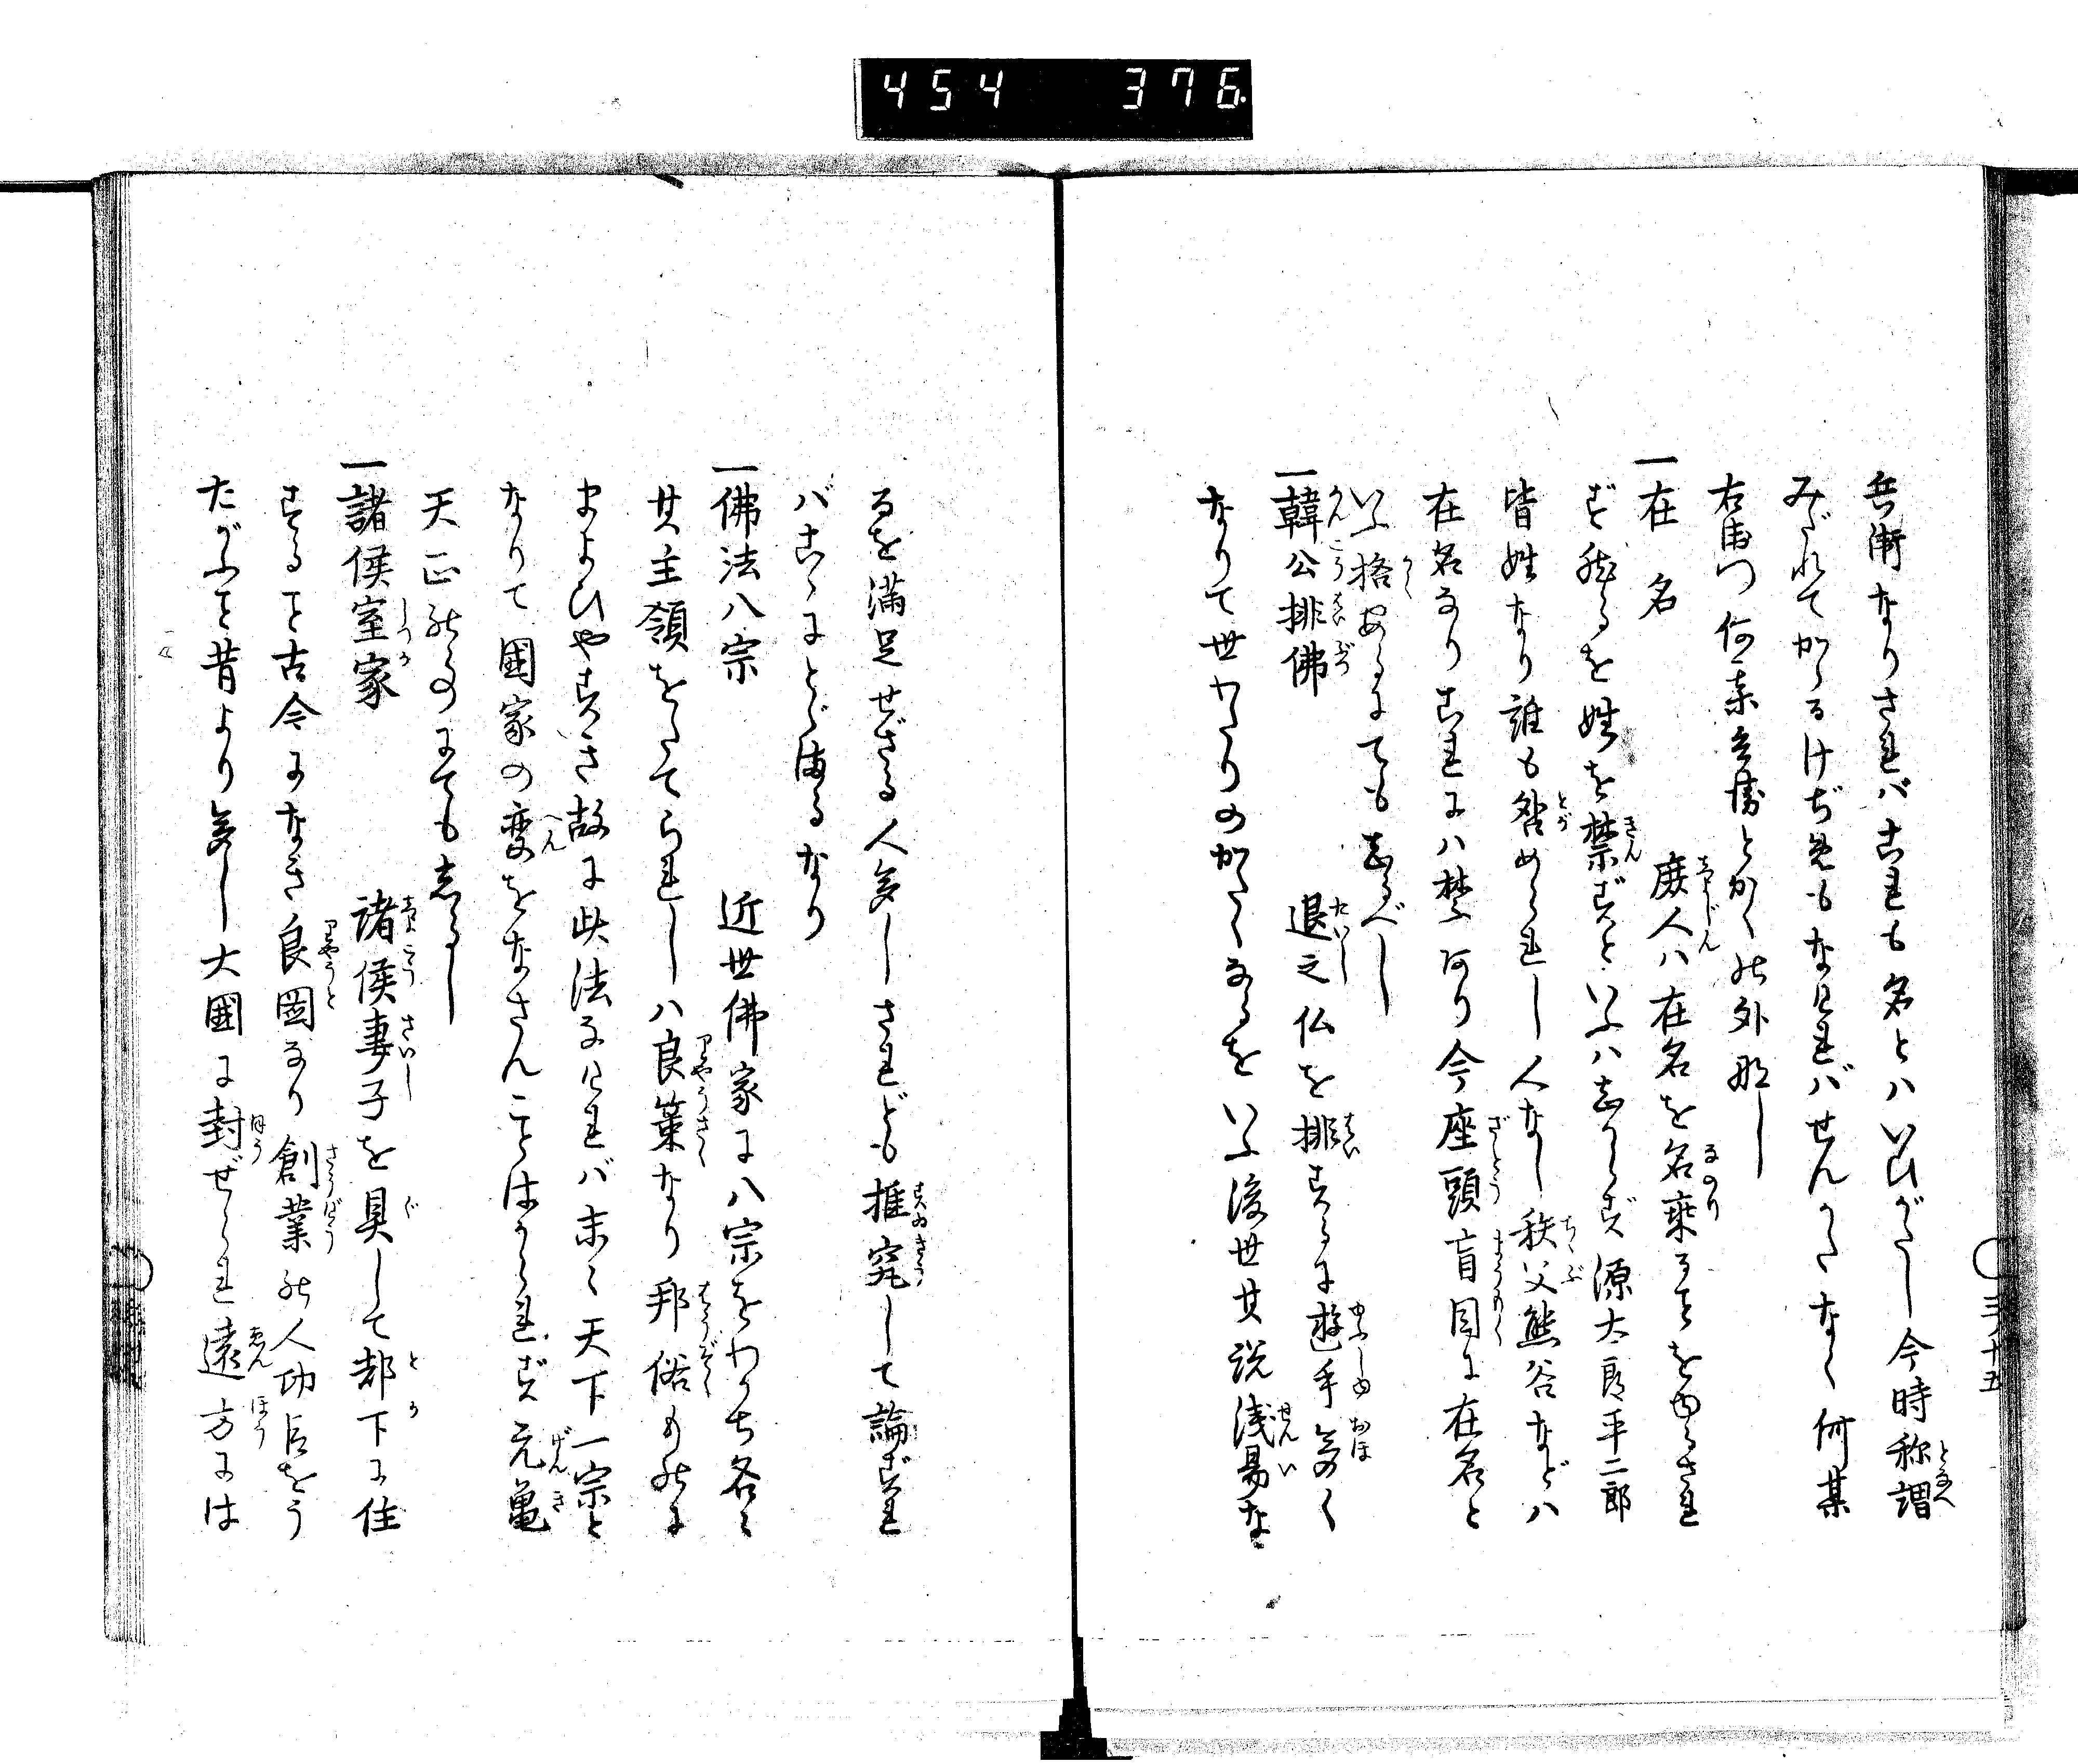 454 376
兵衛なりされバこれも名とハいひがたし今時称謂
みだれてかゝるけぢめもなけれバせんかたなく何某
右衛門何某兵衛とかくの外那し
一在名 庶人ハ在名を名乗ることをゆるされ
ず然るを姓を禁ずといふハしらず源太郎平二郎
皆姓なり誰も咎められし人なし秩父熊谷などハ
在名なりこれにハ禁あり今座頭盲目に在名と
いふ格あるにても志るべし
一韓公排佛 退之仏を排するに遊手多く
なりて世わたりのかたくなるをいふ後世其説浅易な
三ノ十五
るを満足せざる人多しされども推究して論ずれ
バこゝにとゞまるなり
一佛法八宗 近世佛家に八宗をわかち各々
其主領をたてられしハ良策なり邦俗ものに
まよひやすき故に此法なければ末々天下一宗と
なりて國家の変をなさんことはかられず元亀
天正のことにても志るし
一諸侯室家 諸侯妻子を具して都下に住
すること古今になき良図なり創業の人功臣をう
たがふこと昔より多し大國に封ぜられ遠方には